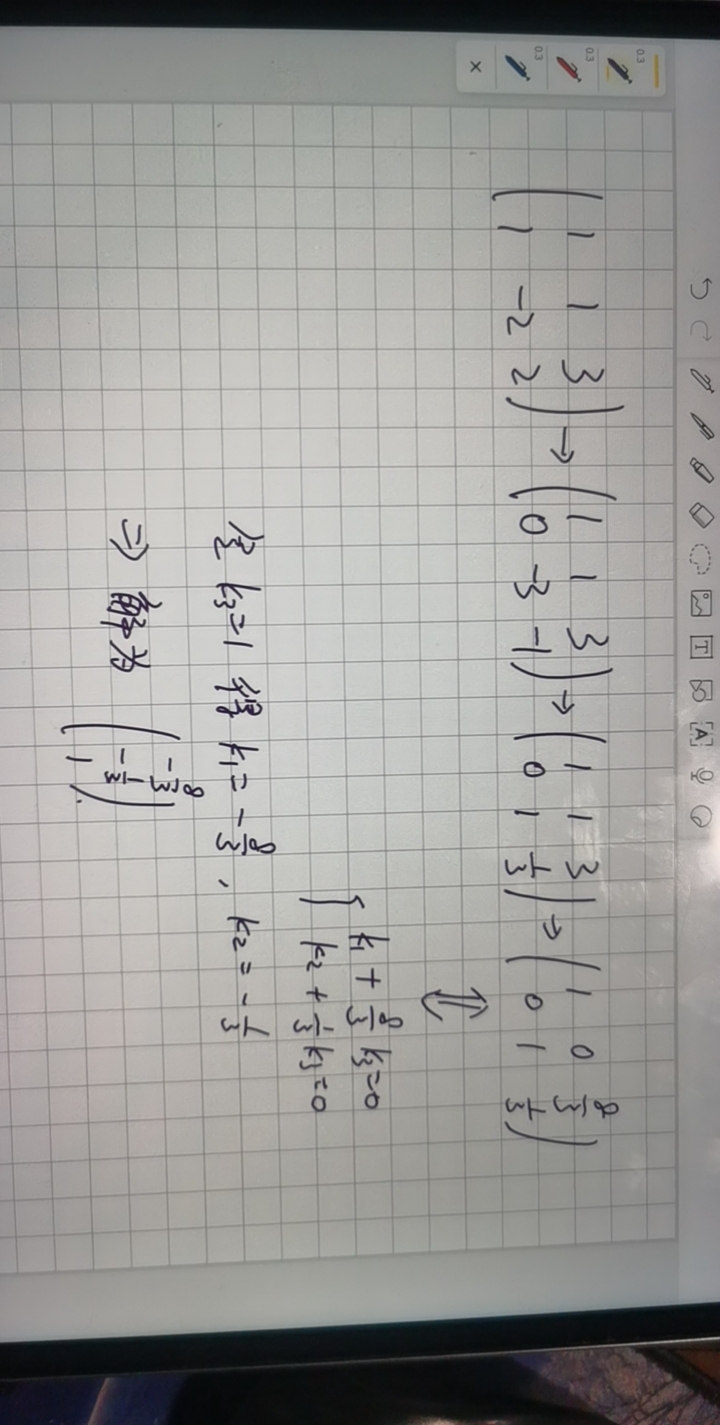 0.3 0.3 0.3
T A
( 1 1 3 ) → ( 1 1 3 ) → ( 1 1 3 ) → ( 1 0 8/3 )
( 1 -2 2 ) ( 0 -3 -1 ) ( 0 1 1/3 ) ( 0 1 1/3 )
⇓
{ k₁ + 8/3 k₃ = 0
k₂ + 1/3 k₃ = 0
令 k₃ = 1 得 k₁ = - 8/3 , k₂ = - 1/3
⇒ 解为 ( - 8/3
- 1/3
1 )